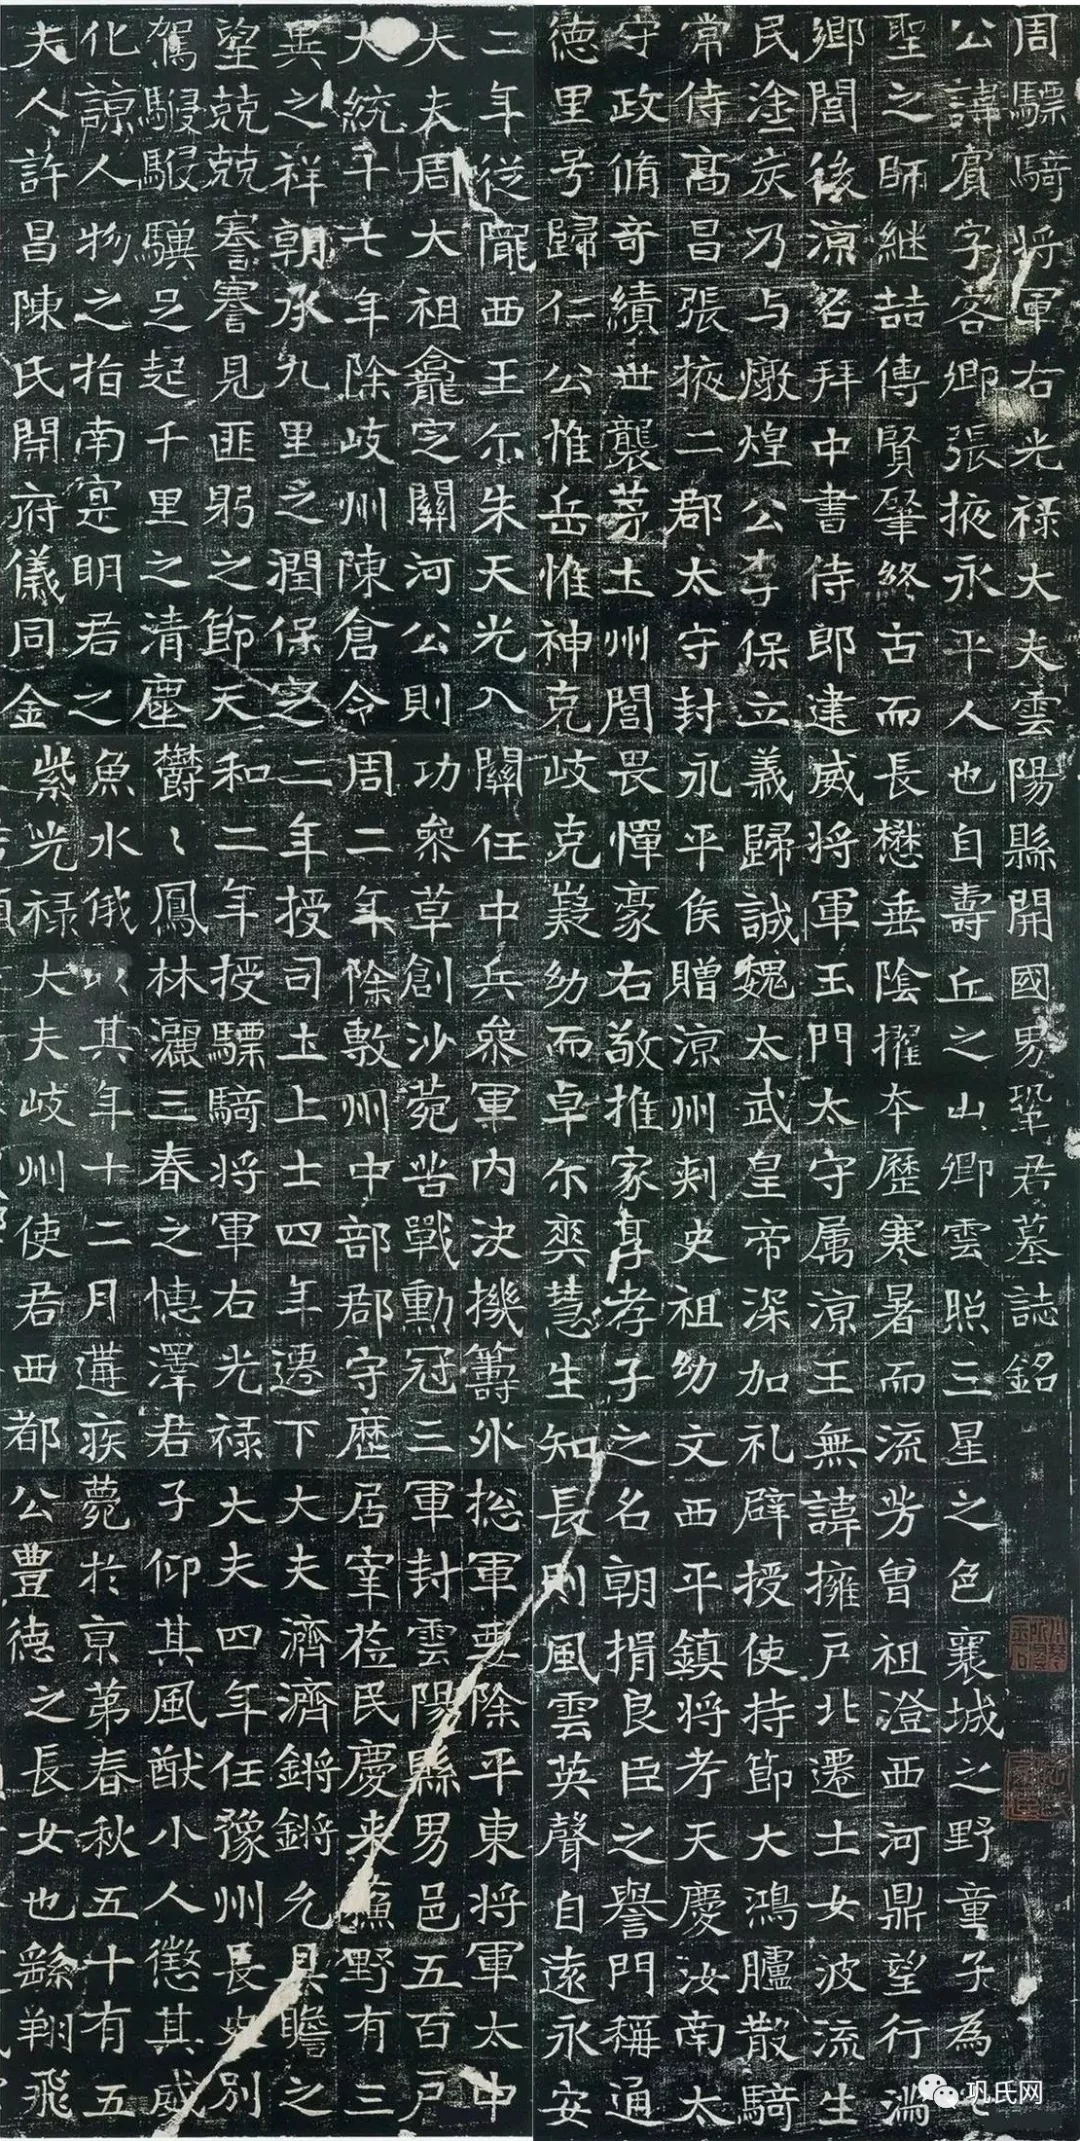 周驃騎將軍右光祿大夫雲陽縣開國男鞏君墓誌銘
公諱賓字客卿張掖永平人也自壽丘之山卿雲照三星之色襄城之野童子為
聖之師継喆傳賢肇終古而長懋垂陰擢夲歷寒暑而流芳曾祖澄西河鼎望行滿
鄉閭後涼召拜中書侍郎建威將軍玉門太守属涼王無諱擁戶北遷士女波流生
民塗炭乃与燉煌公李保立義歸誠魏太武皇帝深加礼辟授使持節大鴻臚散騎
常侍高昌張掖二郡太守封永平侯贈涼州刺史祖幼文西平鎮將考天慶汝南太
守政脩奇績世襲茅土州閭畏憚豪右敬推家享孝子之名朝揖良臣之譽門稱通
德里号歸仁公惟岳惟神克岐克嶷幼而卓尒奕慧生知長則風雲英聲自遠永安
二年從隴西王尒朱天光入關任中兵叅軍內決機籌外揔軍要除平東將軍太中
大夫周大祖龕定關河公則功叅草創沙苑苦戰勳冠三軍封雲陽縣男邑五百戶
大統十七年除岐州陳倉令周二年除敷州中部郡守歷居宰莅民慶来蘇野有三
異之祥朝承九里之潤保定二年授司土上士四年遷下大夫濟濟鏘鏘允具瞻之
望兢兢謇謇見匪躬之節天和二年授驃騎將軍右光祿大夫四年任豫州長史別
駕駸駸驥足起千里之清塵欝〻鳳林灑三春之憓澤君子仰其風猷小人懲其威
化諒人物之指南寔明君之魚水俄以其年十二月遘疾薨於京第春秋五十有五
夫人許昌陳氏開府儀同金紫光祿大夫岐州使君西都公豐德之長女也繇翔飛
巩氏网